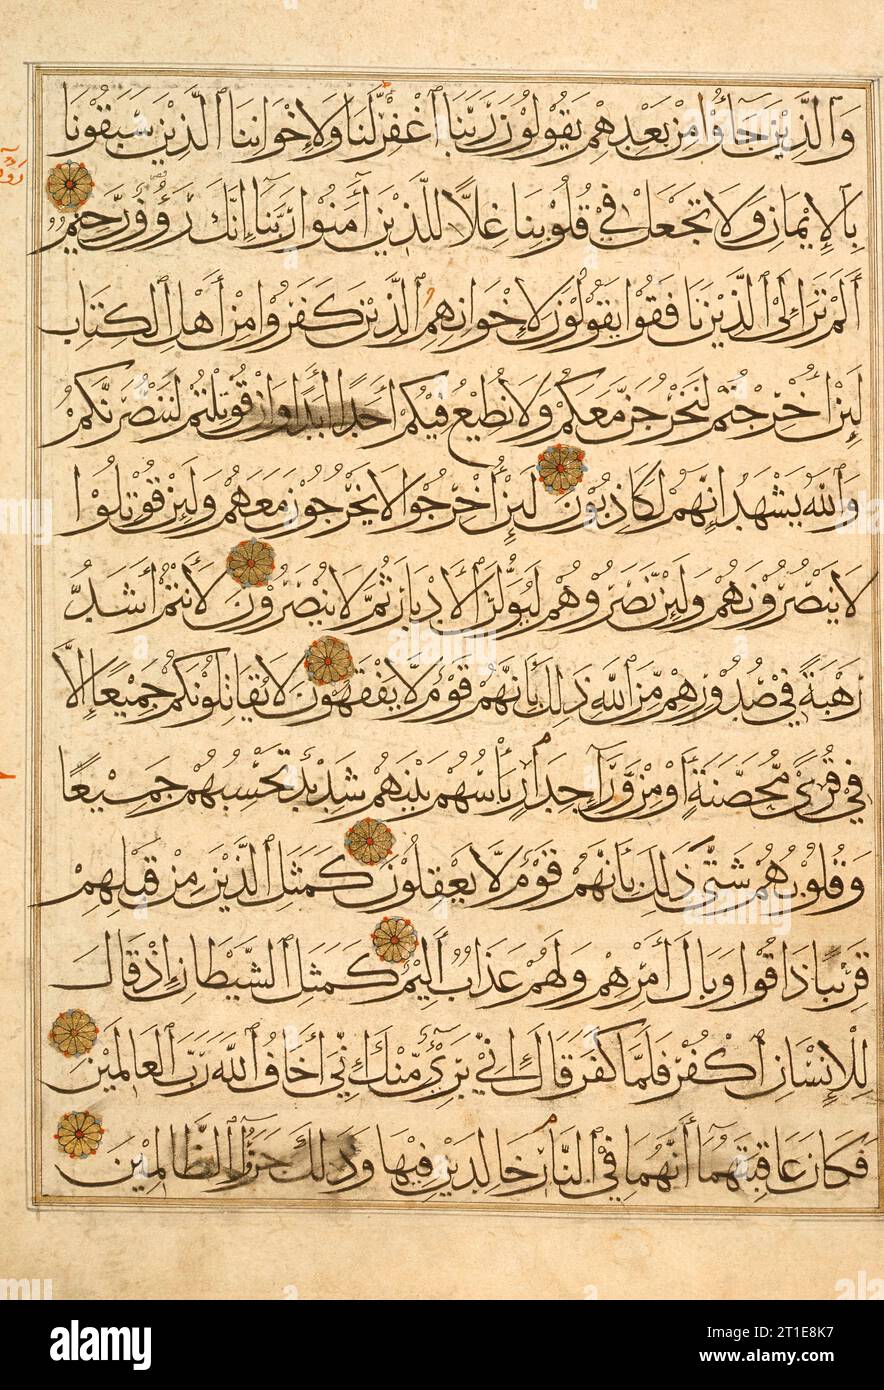 وَالَّذِينَ جَاؤُا مِنْ بَعْدِهِمْ يَقُولُونَ رَبَّنَا اغْفِرْ لَنَا وَلِإِخْوَانِنَا الَّذِينَ سَبَقُونَا
بِالْإِيمَانِ وَلَا تَجْعَلْ فِي قُلُوبِنَا غِلًّا لِلَّذِينَ آمَنُوا رَبَّنَا إِنَّكَ رَؤُوفٌ رَحِيمٌ
أَلَمْ تَرَ إِلَى الَّذِينَ نَافَقُوا يَقُولُونَ لِإِخْوَانِهِمُ الَّذِينَ كَفَرُوا مِنْ أَهْلِ الْكِتَابِ
لَئِنْ أُخْرِجْتُمْ لَنَخْرُجَنَّ مَعَكُمْ وَلَا نُطِيعُ فِيكُمْ أَحَدًا أَبَدًا وَإِنْ قُوتِلْتُمْ لَنَنْصُرَنَّكُمْ
وَاللَّهُ يَشْهَدُ إِنَّهُمْ لَكَاذِبُونَ لَئِنْ أُخْرِجُوا لَا يَخْرُجُونَ مَعَهُمْ وَلَئِنْ قُوتِلُوا
لَا يَنْصُرُونَهُمْ وَلَئِنْ نَصَرُوهُمْ لَيُوَلُّنَّ الْأَدْبَارَ ثُمَّ لَا يُنْصَرُونَ لَأَنْتُمْ أَشَدُّ
رَهْبَةً فِي صُدُورِهِمْ مِنَ اللَّهِ ذَلِكَ بِأَنَّهُمْ قَوْمٌ لَا يَفْقَهُونَ لَا يُقَاتِلُونَكُمْ جَمِيعًا إِلَّا
فِي قُرًى مُحَصَّنَةٍ أَوْ مِنْ وَرَاءِ جِدَارٍ بَأْسُهُمْ بَيْنَهُمْ شَدِيدٌ تَحْسَبُهُمْ جَمِيعًا
وَقُلُوبُهُمْ شَتَّى ذَلِكَ بِأَنَّهُمْ قَوْمٌ لَا يَعْقِلُونَ كَمَثَلِ الَّذِينَ مِنْ قَبْلِهِمْ
قَرِيبًا ذَاقُوا وَبَالَ أَمْرِهِمْ وَلَهُمْ عَذَابٌ أَلِيمٌ كَمَثَلِ الشَّيْطَانِ إِذْ قَالَ
لِلْإِنْسَانِ اكْفُرْ فَلَمَّا كَفَرَ قَالَ إِنِّي بَرِيءٌ مِنْكَ إِنِّي أَخَافُ اللَّهَ رَبَّ الْعَالَمِينَ
فَكَانَ عَاقِبَتَهُمَا أَنَّهُمَا فِي النَّارِ خَالِدَيْنِ فِيهَا وَذَلِكَ جَزَاءُ الظَّالِمِينَ
alamy
Image ID: 2T1E8K7
www.alamy.com